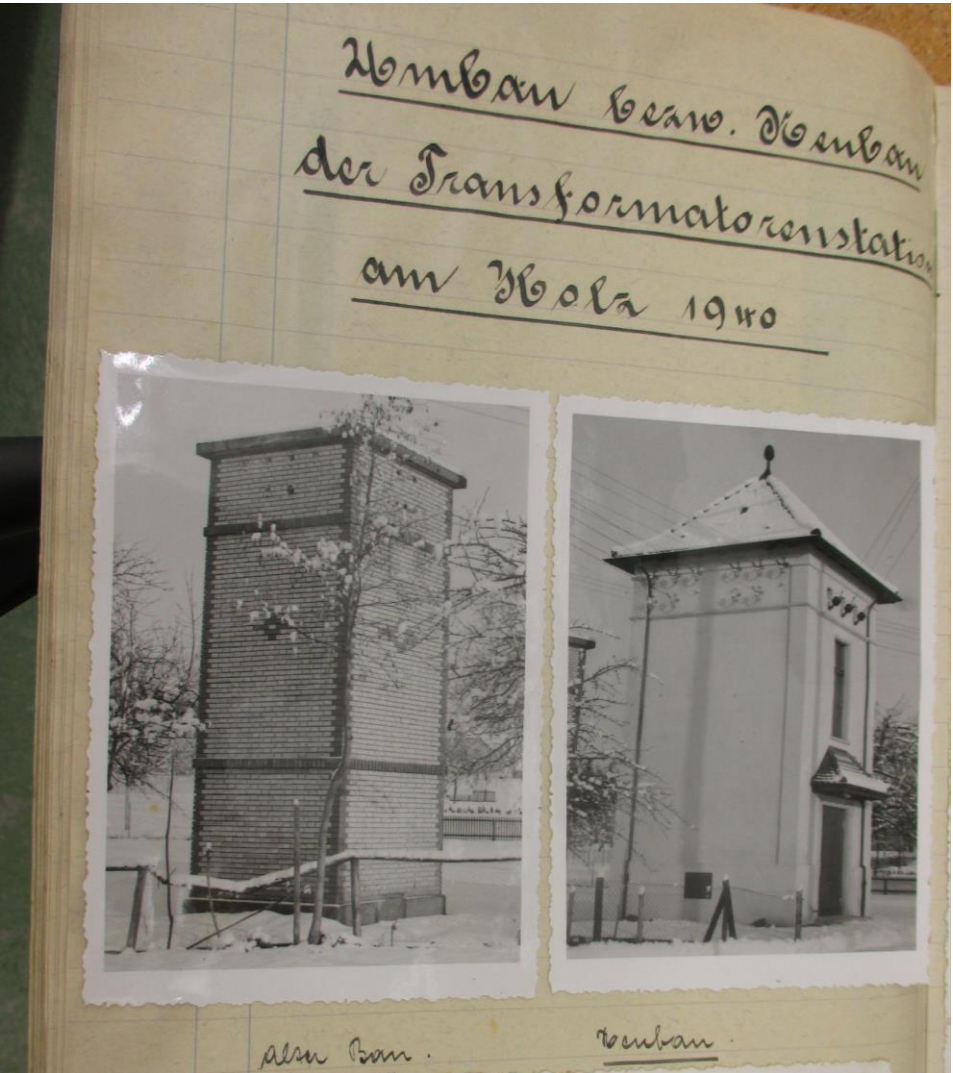 Umbau bezw. Neubau
der Transformatorenstation
am Holz 1940
alter Bau.
Neubau.